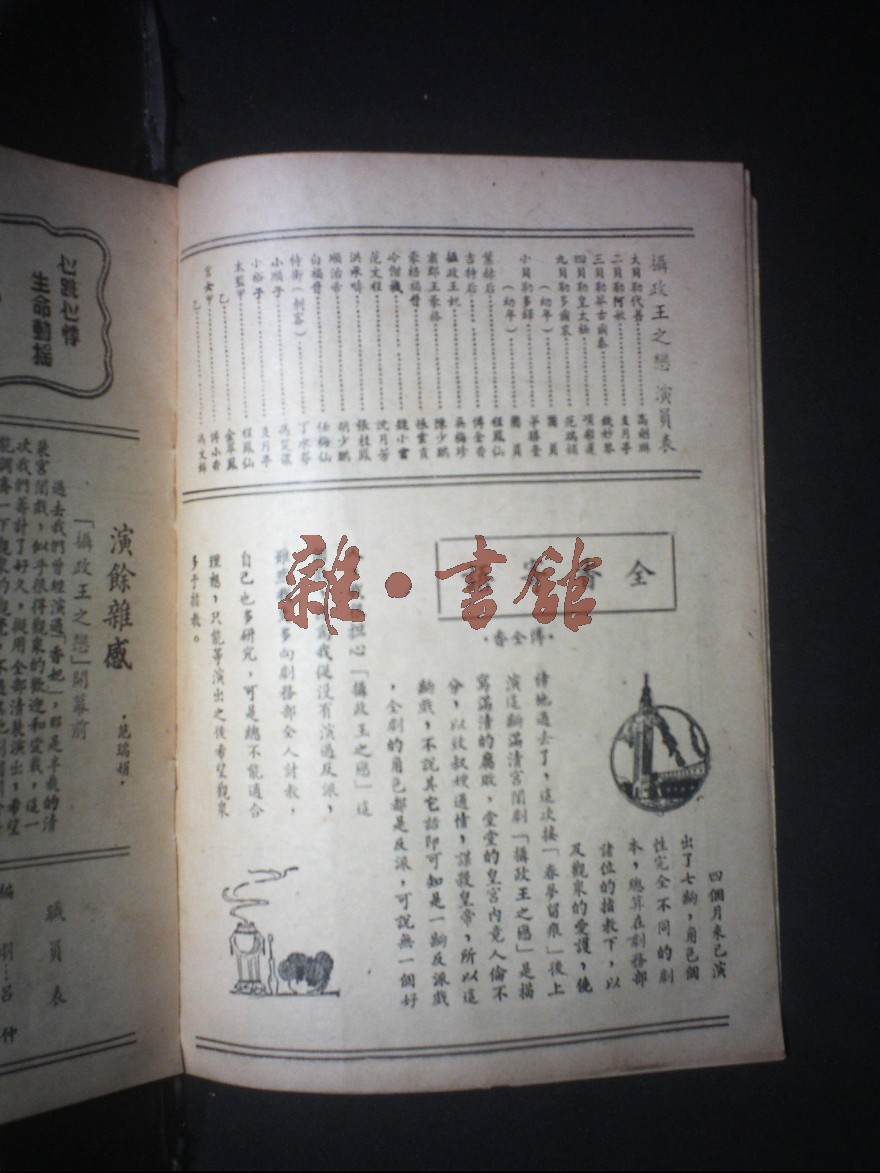 攝政王之戀 演員表
大貝勒代善……………高劍琳
二貝勒阿敏……………支月亭
三貝勒莽古爾泰……………錢妙琴
四貝勒皇太極……………項彩蓮
九貝勒多爾袞……………范瑞娟
（幼年）……………團員
小貝勒多鐸……………茅勝奎
（幼年）……………團員
葉赫后……………程鳳仙
吉特后……………傅全香
攝政王妃……………吳梅珍
肅郡王豪格……………陳少鵬
豪格福晉……………張雲霞
冷僧機……………魏小雲
范文程……………沈月芳
洪承疇……………張桂鳳
順治帝……………胡少鵬
白福晉……………任梅仙
侍衛（刺客）……………丁冰
小順子……………馮
小裕子……………支月亭
太監甲……………程鳳仙
乙……………金翠鳳
宮女甲……………傅小香
乙……………馮文錦
全香
·傅全香·
四個月來已演
出了七齣，角色個
性完全不同的劇
本，總算在劇務部
諸位的指教下，以
及觀衆的愛護，僥
倖地過去了，這次接「春夢留痕」後上
演這齣滿清宮闈劇「攝政王之戀」是描
寫滿清的腐敗，堂堂的皇宮內竟人倫不
分，以奴叔嫂通情，謀殺皇帝，所以這
齣戲，不說其它話即可知是一齣反派戲
，全劇的角色都是反派，可說無一個好
担心「攝政王之戀」這
我從沒有演過反派，
多向劇務部全人討教，
自己也多研究，可是總不能適合
理想，只能等演出之後希望觀衆
多予指教。
雜·書館
心跳心悸
生命動搖
演餘雜感
·范瑞娟·
「攝政王之戀」開幕前
過去我們曾經演過「香妃」，那是半截的清
裝宮闈戲，似乎很得觀衆的歡迎和愛戴，這一
次我們籌計了好久，擬用全部清裝演出，希望
職員表
編劇…呂仲